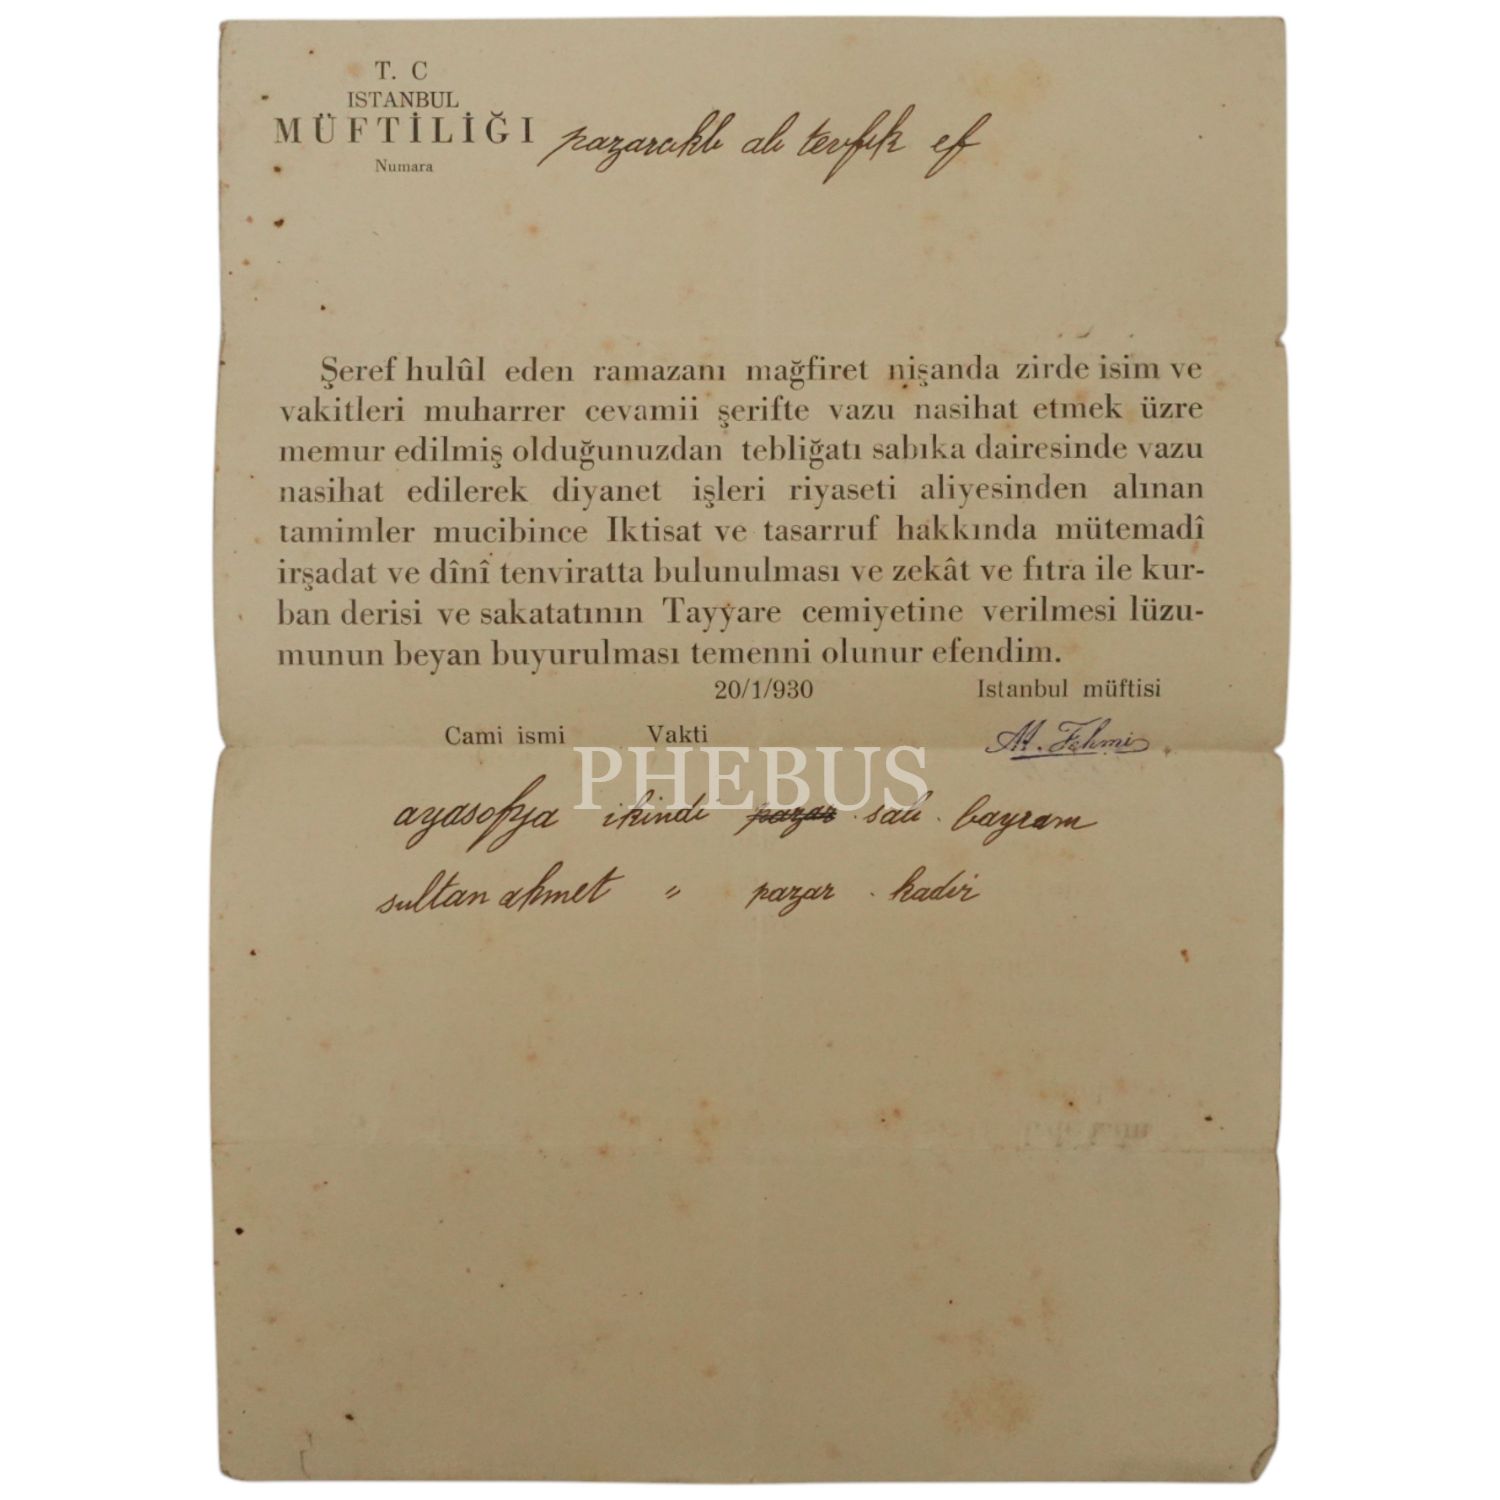 T. C
ISTANBUL
MÜFTİLİĞI
Numara
pazarcıklı ali tevfik ef
Şeref hulûl eden ramazanı mağfiret nişanda zirde isim ve
vakitleri muharrer cevamii şerifte vazu nasihat etmek üzre
memur edilmiş olduğunuzdan tebliğatı sabıka dairesinde vazu
nasihat edilerek diyanet işleri riyaseti aliyesinden alınan
tamimler mucibince Iktisat ve tasarruf hakkında mütemadî
irşadat ve dînî tenviratta bulunulması ve zekât ve fıtra ile kur-
ban derisi ve sakatatının Tayyare cemiyetine verilmesi lüzu-
munun beyan buyurulması temenni olunur efendim.
20/1/930 Istanbul müftisi
Cami ismi Vakti M. Fehmi
PHEBUS
ayasofya ikindi pazar salı . bayram
sultan ahmet " pazar . kadir